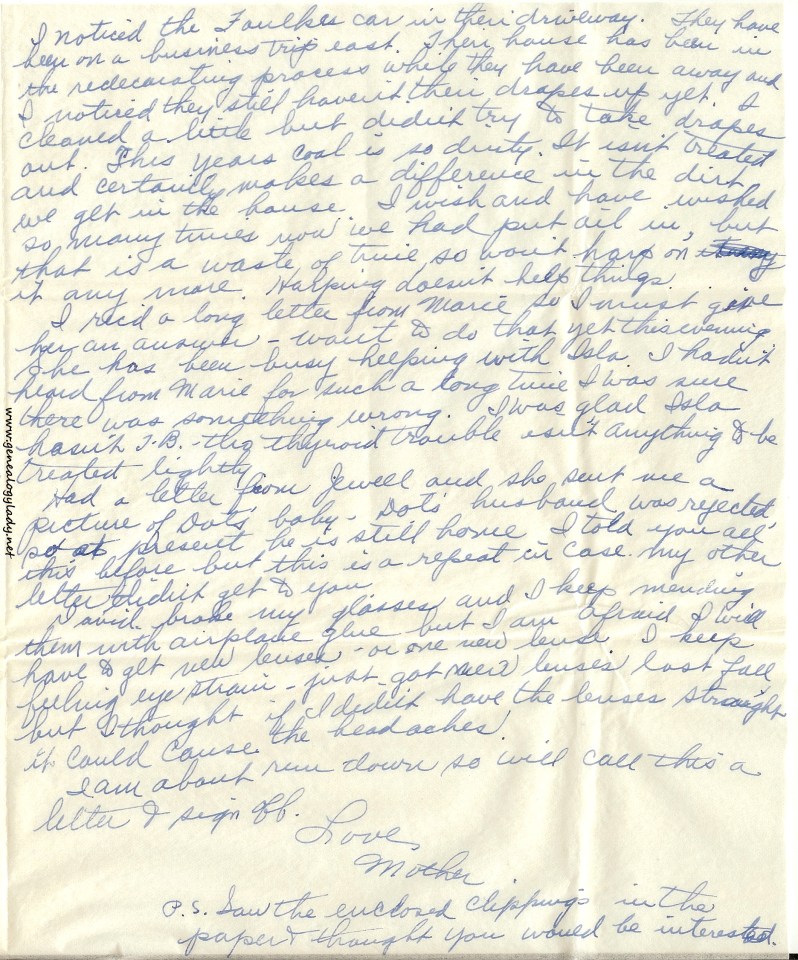 I noticed the Faulkes car in their driveway. They have
been on a business trip east. Their house has been in
the redecorating process while they have been away and
I noticed they still haven't their drapes up yet. I
cleaned a little but didn't try to take drapes
out. This years coal is so dirty. It isn't treated
and certainly makes a difference in the dirt
we get in the house. I wish and have wished
so many times now we had put oil in, but
that is a waste of time, so won't harp on
it any more. Harping doesn't help things.
I rec'd a long letter from Marie so I must give
her an answer - want to do that yet this evening.
She has been busy helping with Isla. I hadn't
heard from Marie for such a long time I was sure
there was something wrong. I was glad Isla
hasn't T.B. - tho thyroid trouble isn't anything to be
treated lightly.
Had a letter from Jewell and she sent me a
picture of Dot's baby - Dot's husband was rejected
so at present he is still home. I told you all
this before but this is a repeat in case my other
letter didn't get to you.
David broke my glasses and I keep mending
them with airplane glue but I am afraid I will
have to get new lenses - or one new lense. I keep
feeling eye strain - just got new lenses last fall
but I thought if I didn't have the lenses straight
it could cause the headaches.
I am about run down so will call this a
letter & sign off.
Love,
Mother
P.S. Saw the enclosed clippings in the
paper & thought you would be interested.
www.genealogylady.net